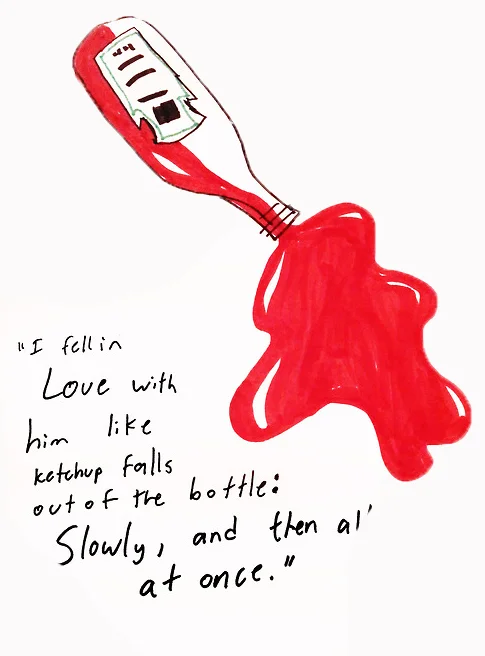 "I fell in
Love with
him like
ketchup falls
out of the bottle:
Slowly, and then al'
at once."